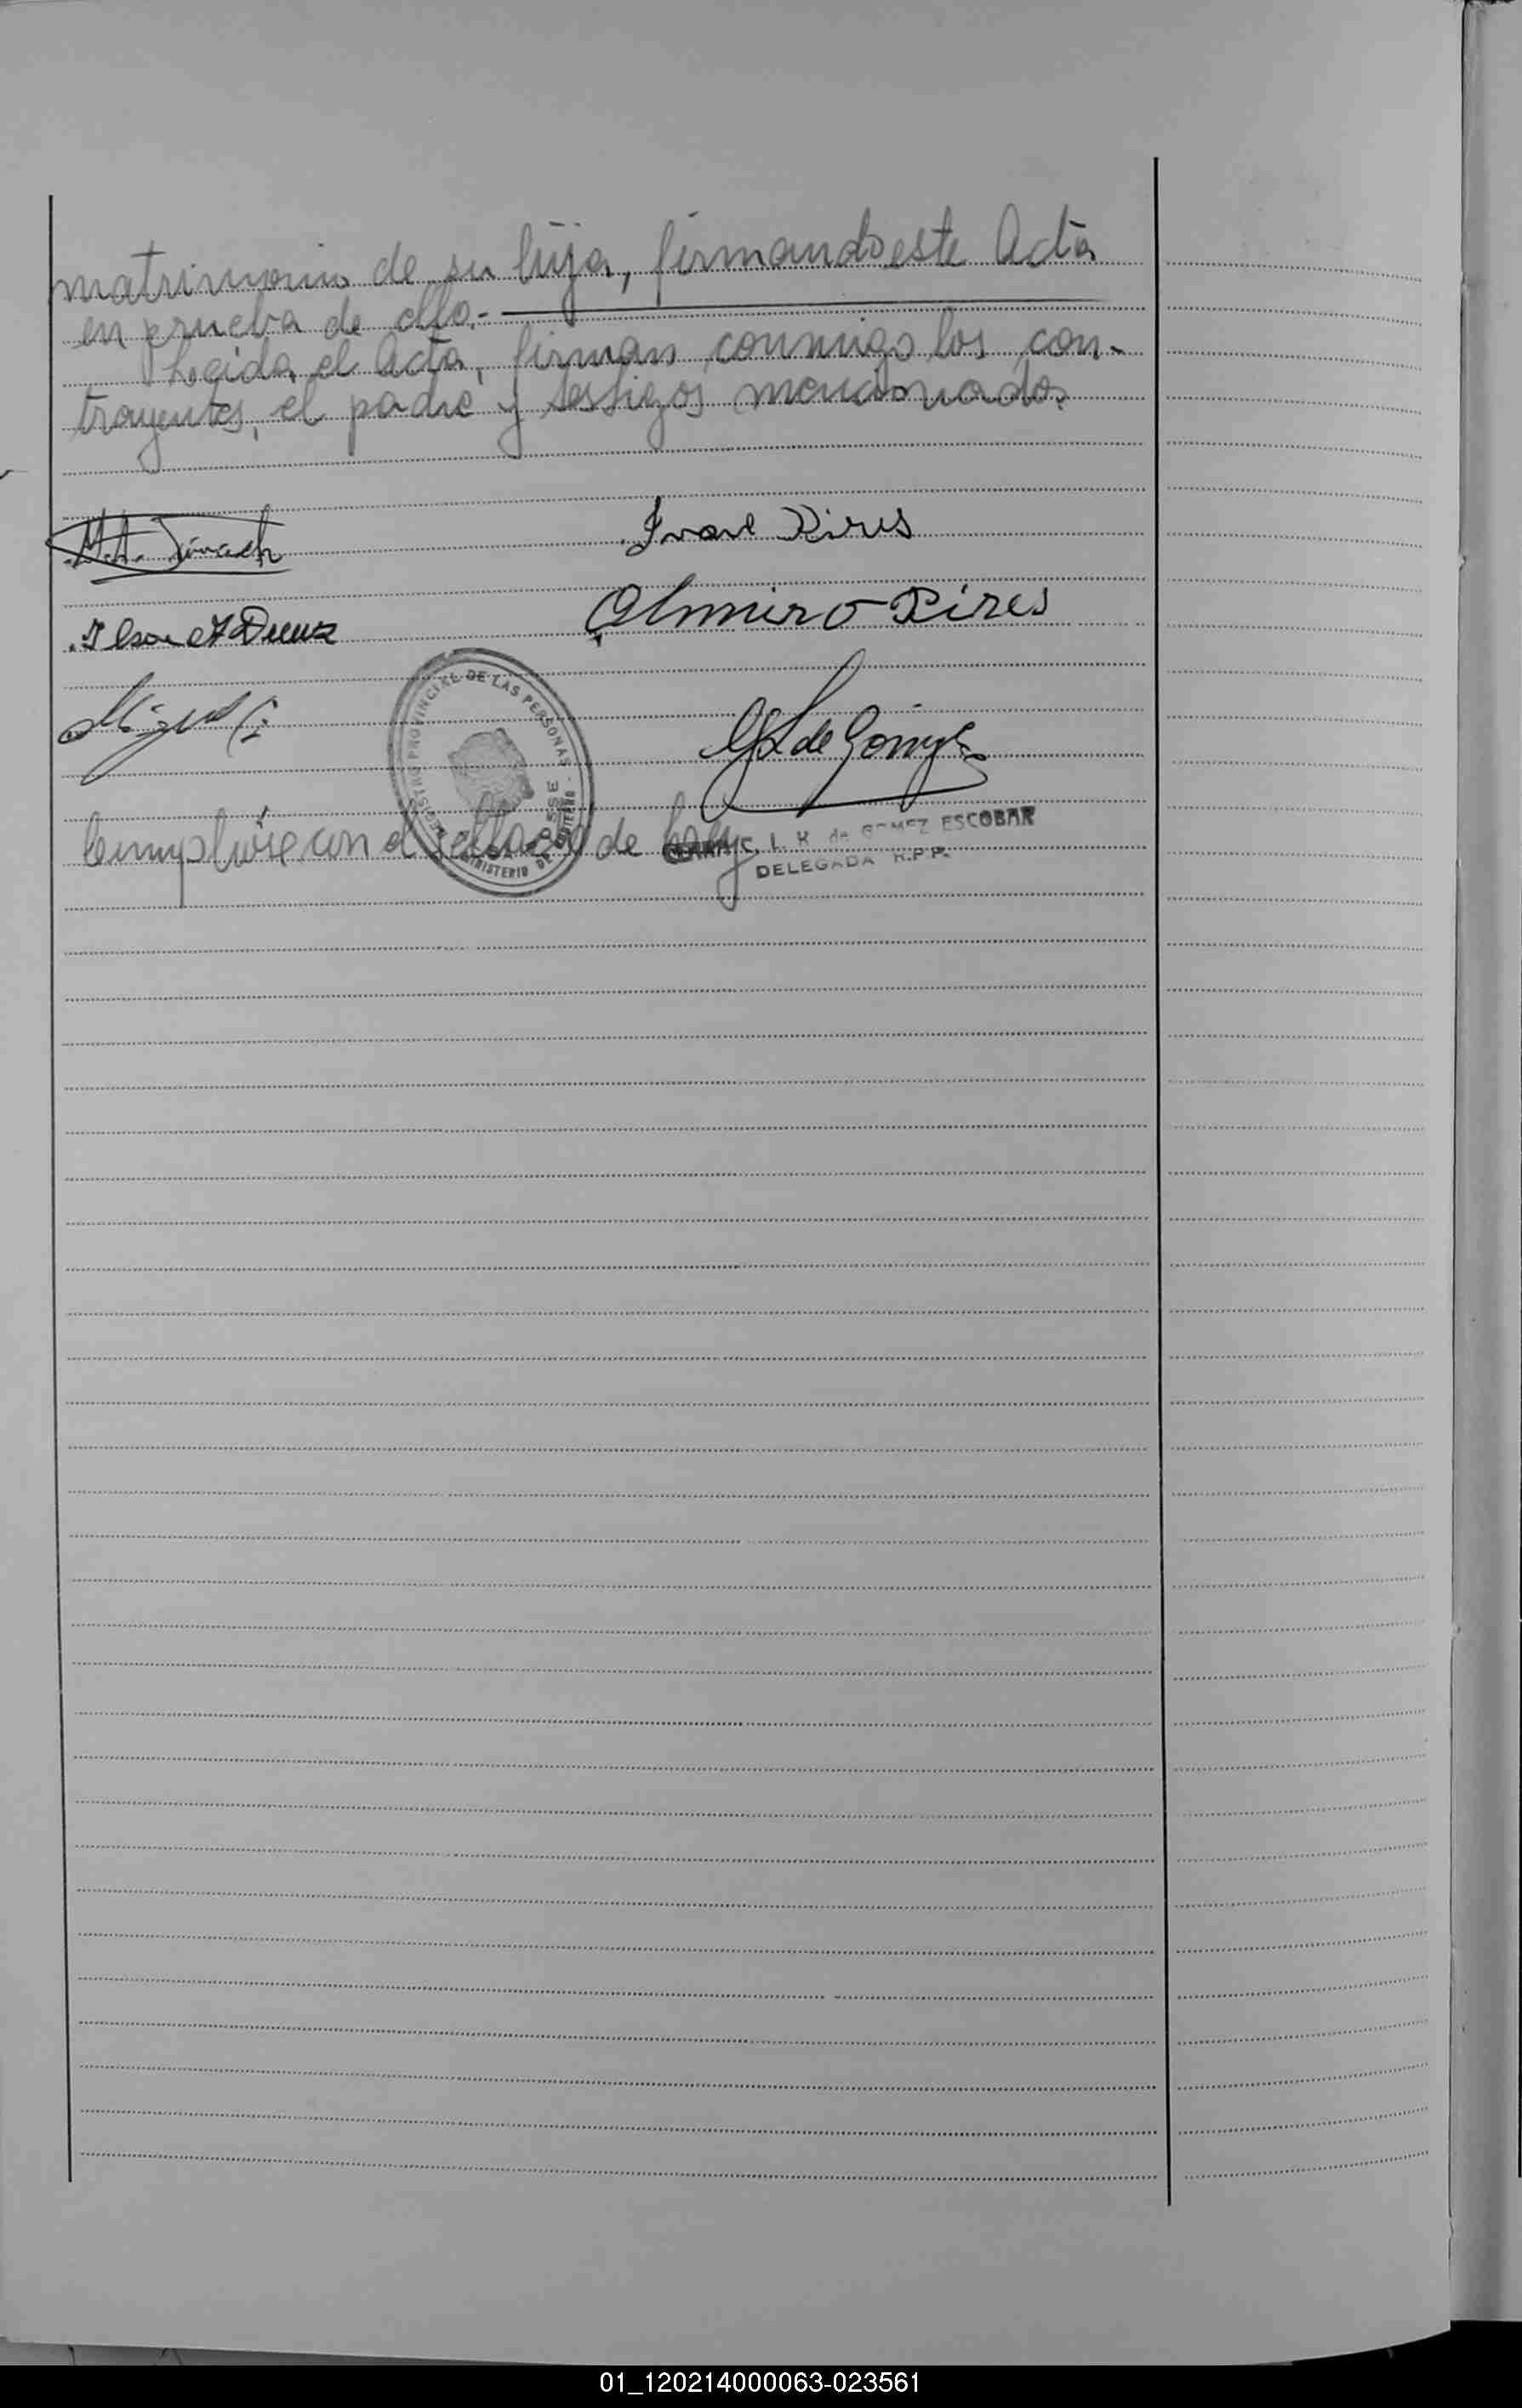 matrimonio de su hija, firmando este Acta
en prueba de ello.-
Leída el Acta, firman conmigo los con-
trayentes, el padre y testigos mencionados
Ivane Pires
Almiro Pires
Miguel
REGISTRO PROVINCIAL DE LAS PERSONAS
MINISTERIO DE GOBIERNO
de Gómez
Cumplióse con el sellado de ley
C. I. K. de GOMEZ ESCOBAR
DELEGADA R.P.P.
01_120214000063-023561